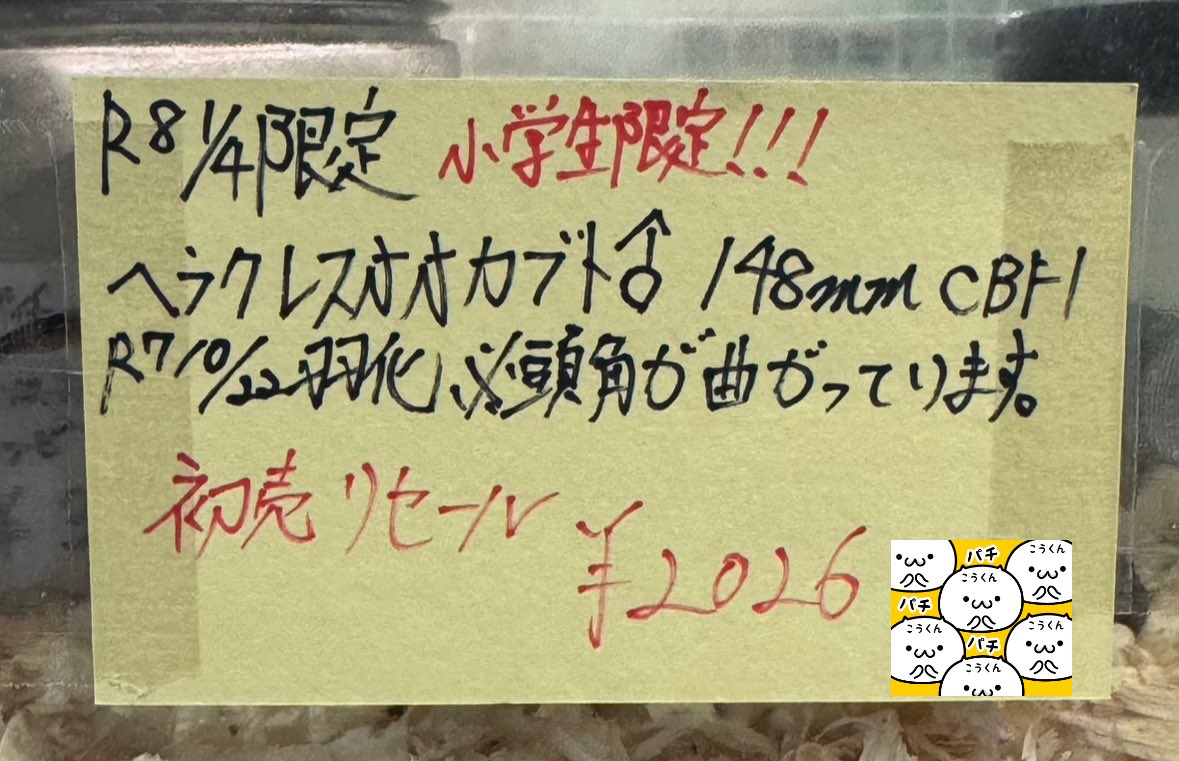 R8 1/4限定 小学生限定!!!
ヘラクレスオオカブト♂ 148mm CBF1
R7 10/22羽化 ※頭角が曲がっています。
初売りセール ¥2026
パチ
こうくん
こうくん
パチ
こうくん
こうくん
パチ
こうくん